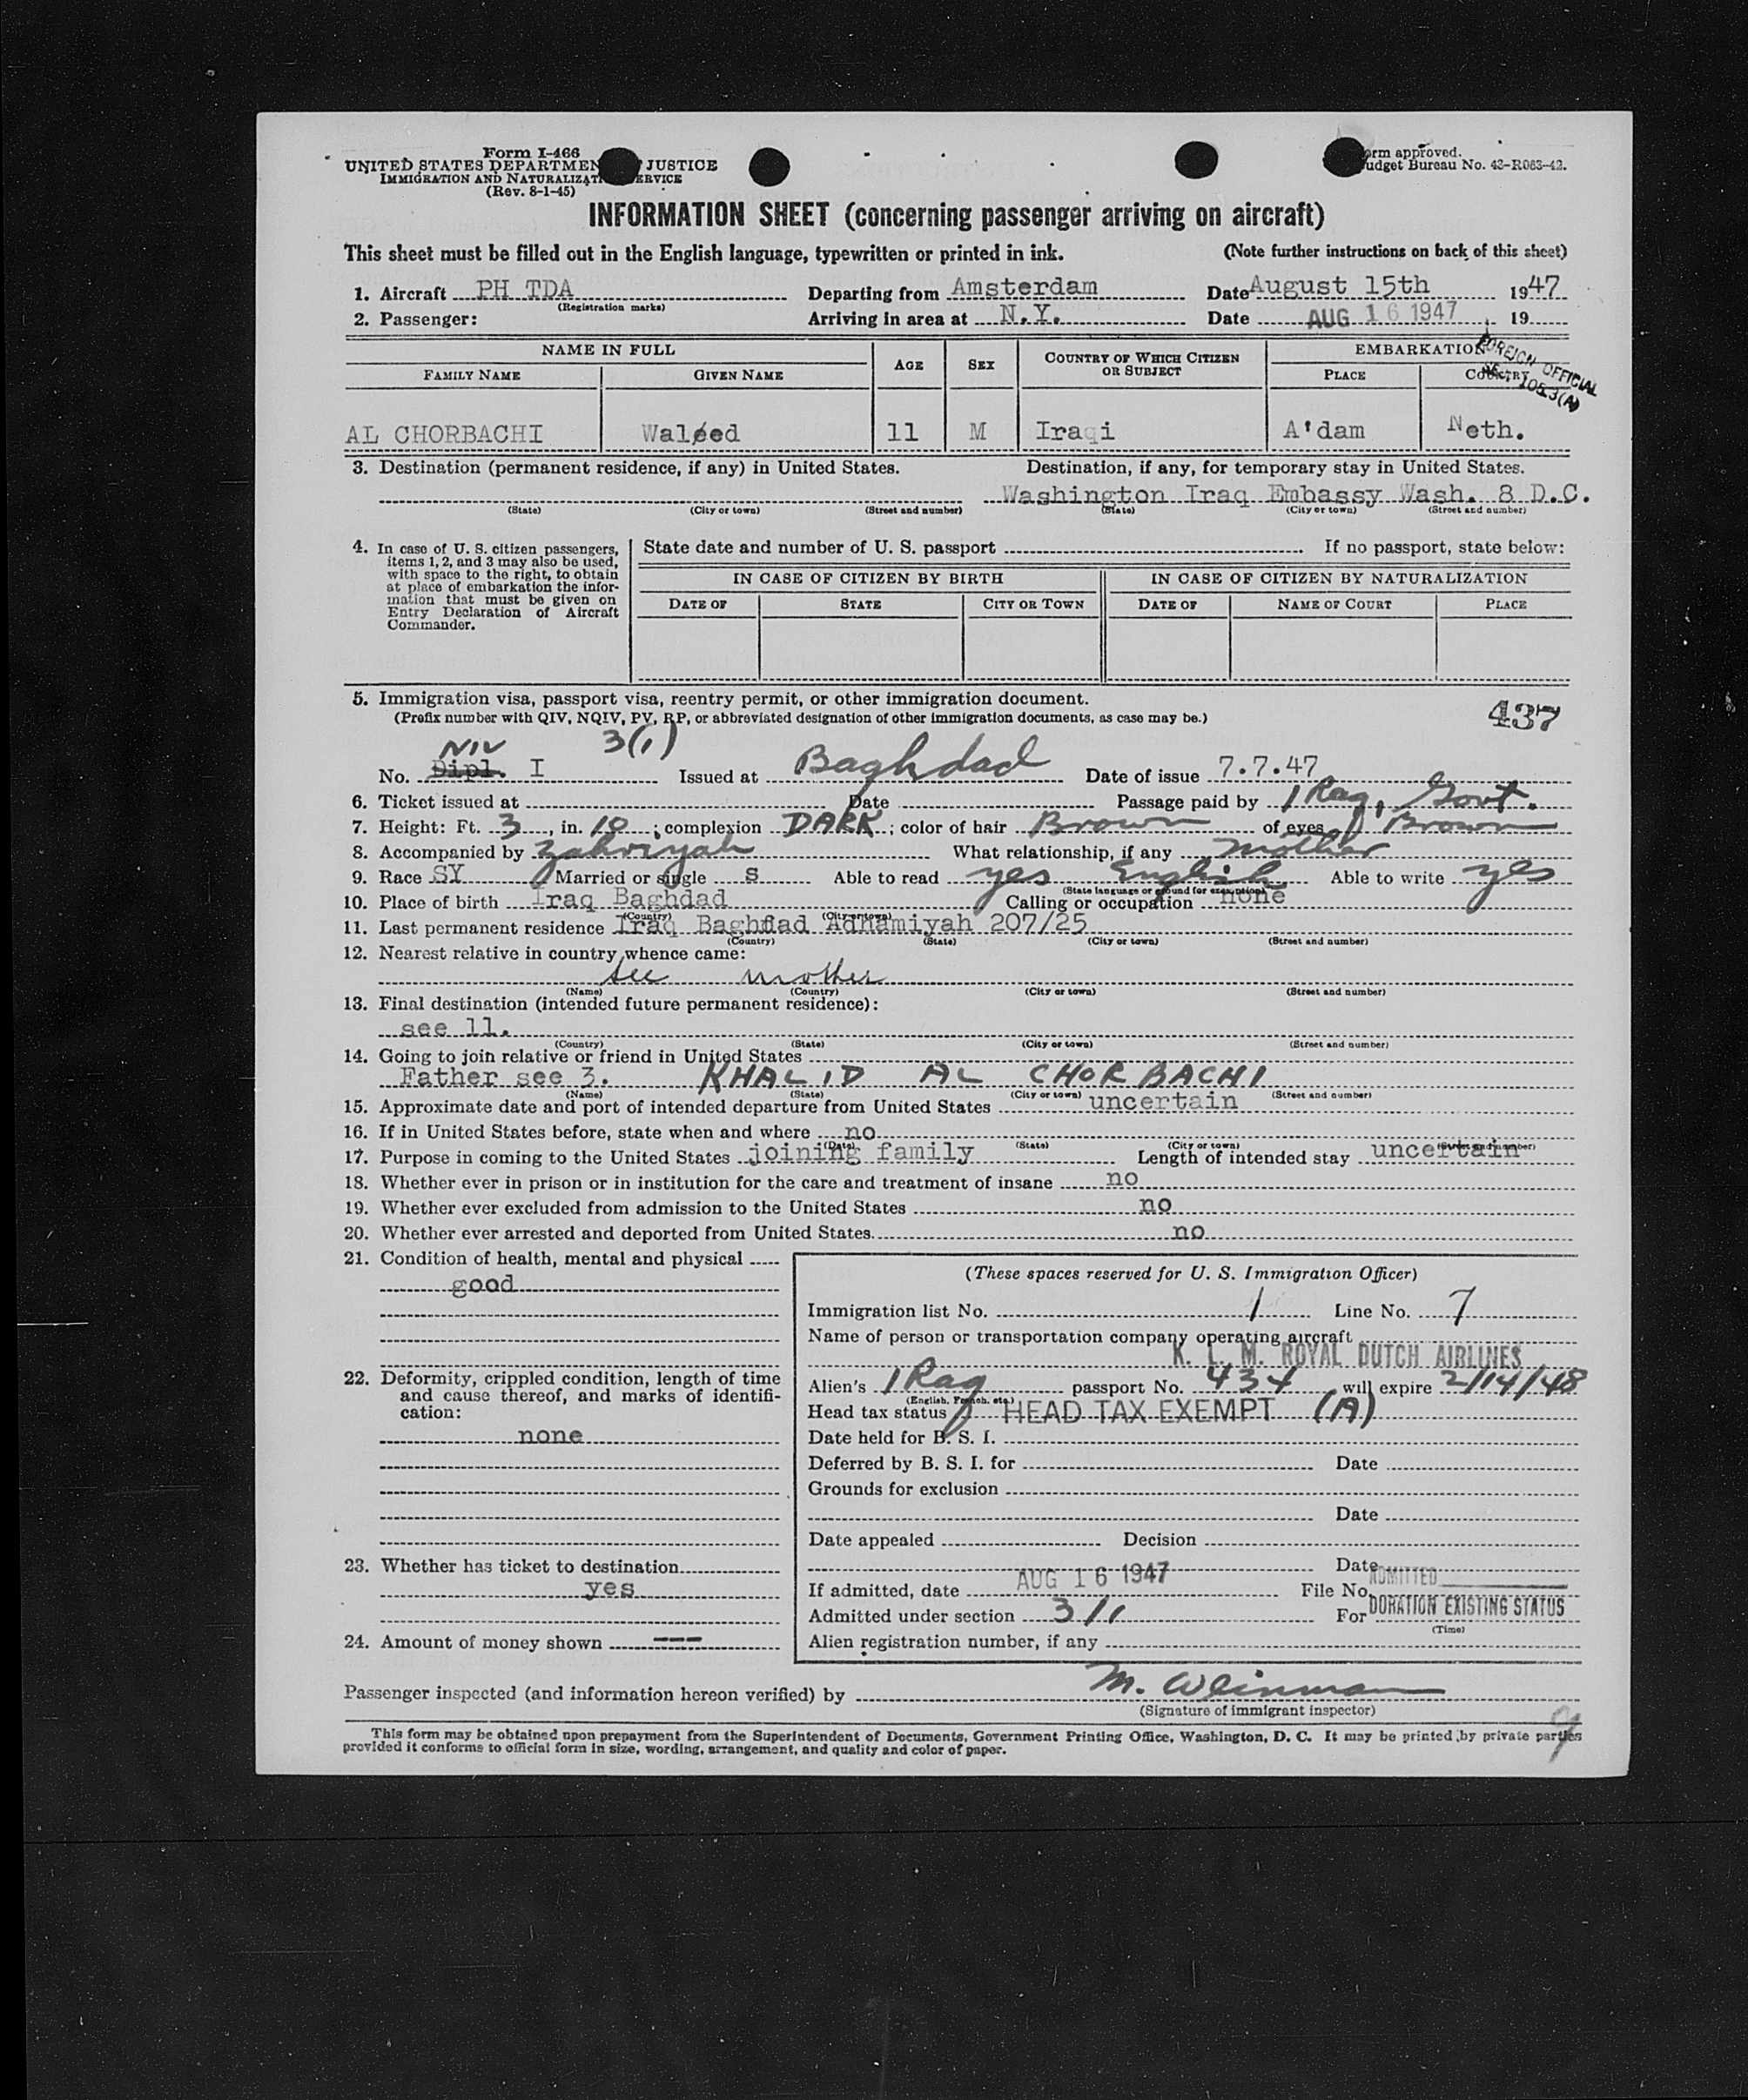 Form I-466
UNITED STATES DEPARTMEN JUSTICE
IMMIGRATION AND NATURALIZATI ERVICE
(Rev. 8-1-45)
orm approved.
udget Bureau No. 43-R063-42.
INFORMATION SHEET (concerning passenger arriving on aircraft)
This sheet must be filled out in the English language, typewritten or printed in ink. (Note further instructions on back of this sheet)
1. Aircraft PH TDA Departing from Amsterdam Date August 15th 1947
(Registration marks)
2. Passenger: Arriving in area at N.Y. Date AUG 16 1947 19
NAME IN FULL AGE SEX COUNTRY OF WHICH CITIZEN OR SUBJECT EMBARKATION
FAMILY NAME GIVEN NAME PLACE COUNTRY
FOREIGN OFFICIAL
105.3(A)
AL CHORBACHI Waleed 11 M Iraqi A'dam Neth.
3. Destination (permanent residence, if any) in United States. Destination, if any, for temporary stay in United States.
Washington Iraq Embassy Wash. 8 D.C.
(State) (City or town) (Street and number) (State) (City or town) (Street and number)
4. In case of U. S. citizen passengers, items 1, 2, and 3 may also be used, with space to the right, to obtain at place of embarkation the information that must be given on Entry Declaration of Aircraft Commander.
State date and number of U. S. passport If no passport, state below:
IN CASE OF CITIZEN BY BIRTH IN CASE OF CITIZEN BY NATURALIZATION
DATE OF STATE CITY OR TOWN DATE OF NAME OF COURT PLACE
5. Immigration visa, passport visa, reentry permit, or other immigration document.
(Prefix number with QIV, NQIV, PV, RP, or abbreviated designation of other immigration documents, as case may be.) 437
NIV 3(1)
No. Dipl. I Issued at Baghdad Date of issue 7.7.47
6. Ticket issued at Date Passage paid by IRaq, Govt.
7. Height: Ft. 3, in. 10; complexion DARK; color of hair Brown of eyes Brown
8. Accompanied by Zahriyah What relationship, if any mother
9. Race SY Married or single s Able to read yes English Able to write yes
(State language or ground for exemption)
10. Place of birth Iraq Baghdad Calling or occupation none
(Country) (City or town)
11. Last permanent residence Iraq Baghdad Adhamiyah 207/25
(Country) (State) (City or town) (Street and number)
12. Nearest relative in country whence came:
see mother
(Name) (Country) (City or town) (Street and number)
13. Final destination (intended future permanent residence):
see 11.
(Country) (State) (City or town) (Street and number)
14. Going to join relative or friend in United States
Father see 3. KHALID AL CHORBACHI
(Name) (State) (City or town) (Street and number)
15. Approximate date and port of intended departure from United States uncertain
16. If in United States before, state when and where no
(Date) (State) (City or town) (Street and number)
17. Purpose in coming to the United States joining family Length of intended stay uncertain
18. Whether ever in prison or in institution for the care and treatment of insane no
19. Whether ever excluded from admission to the United States no
20. Whether ever arrested and deported from United States. no
21. Condition of health, mental and physical
good
22. Deformity, crippled condition, length of time and cause thereof, and marks of identification:
none
23. Whether has ticket to destination
yes
24. Amount of money shown ---
(These spaces reserved for U. S. Immigration Officer)
Immigration list No. 1 Line No. 7
Name of person or transportation company operating aircraft
K. L. M. ROYAL DUTCH AIRLINES
Alien's IRaq passport No. 434 will expire 2/14/48
(English, French, etc.)
Head tax status HEAD TAX EXEMPT (A)
Date held for B. S. I.
Deferred by B. S. I. for Date
Grounds for exclusion
Date
Date appealed Decision
Date
If admitted, date AUG 16 1947 File No. ADMITTED
Admitted under section 3/1 For DURATION EXISTING STATUS
(Time)
Alien registration number, if any
Passenger inspected (and information hereon verified) by M. Weinman
(Signature of immigrant inspector)
This form may be obtained upon prepayment from the Superintendent of Documents, Government Printing Office, Washington, D. C. It may be printed by private parties
provided it conforms to official form in size, wording, arrangement, and quality and color of paper.